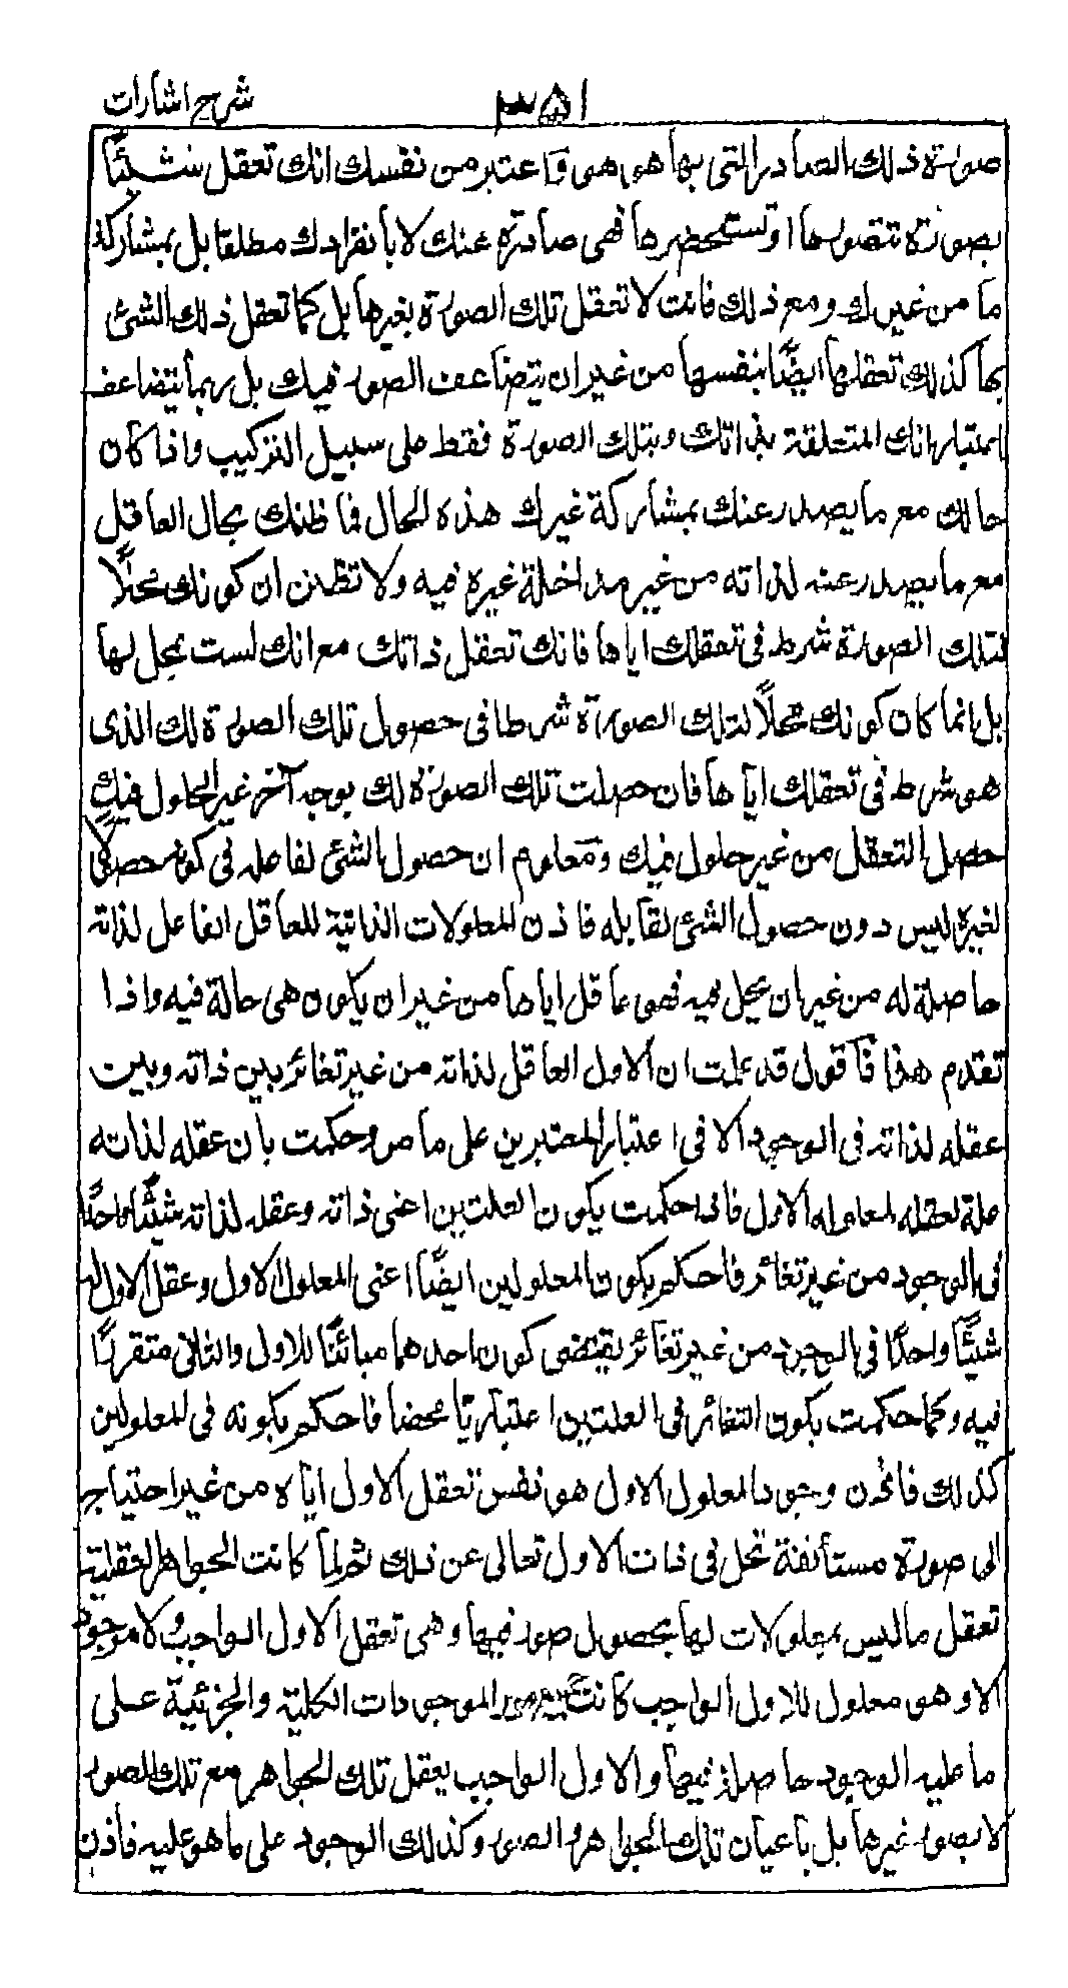 شرح اشارات
٣٥١
صورة ذلك الصادر التى بها هو هو واعتبر من نفسك انك تعقل شيئًا
بصورة تتصورها او تستحضرها فهى صادرة عنك لا بانفرادك مطلقا بل بمشاركة
ما من غيرك ومع ذلك فانت لا تعقل تلك الصورة بغيرها بل كما تعقل ذلك الشئ
بها كذلك تعقلها ايضًا بنفسها من غير ان يتضاعف الصور فيك بل ربما يتضاعف
اعتباراتك المتعلقة بذاتك وبتلك الصورة فقط على سبيل التركيب واذا كان
حالك مع ما يصدر عنك بمشاركة غيرك هذه الحال فما ظنك بحال العاقل
مع ما يصدر عنه لذاته من غير مداخلة غيره فيه ولا تظنن ان كونك محلًّا
لتلك الصورة شرط فى تعقلك اياها فانك تعقل ذاتك مع انك لست بمحل لها
بل انما كان كونك محلًّا لتلك الصورة شرطا فى حصول تلك الصورة لك الذى
هو شرط فى تعقلك اياها فان حصلت تلك الصورة لك بوجه آخر غير الحلول فيك
حصل التعقل من غير حلول فيك ومعلوم ان حصول الشئ لفاعله فى كونه حصولًا
لغيره ليس دون حصول الشئ لقابله فاذن المعلولات الذاتية للعاقل الفاعل لذاته
حاصلة له من غير ان يحل فيه فهو عاقل اياها من غير ان يكون هى حالة فيه واذا
تقدم هذا فاقول قد علمت ان الاول العاقل لذاته من غير تغائر بين ذاته وبين
عقله لذاته فى الوجود الا فى اعتبار المعتبرين على ما مر وحكمت بان عقله لذاته
علة لعقله لمعلوله الاول فاذا حكمت بكون العلتين اعنى ذاته وعقله لذاته شيئًا واحدًا
فى الوجود من غير تغائر فاحكم بكون المعلولين ايضًا اعنى المعلول الاول وعقل الاول له
شيئًا واحدًا فى الوجود من غير تغائر يقتضى كون احدهما مبائنًا للاول والثانى متقررًا
فيه وكما حكمت بكون التغائر فى العلتين اعتباريًا محضا فاحكم بكونه فى المعلولين
كذلك فاذن وجود المعلول الاول هو نفس تعقل الاول اياه من غير احتياج
الى صورة مستأنفة تحل فى ذات الاول تعالى عن ذلك ثم لما كانت الجواهر العقلية
تعقل ما ليس بمعلولات لها بحصول صور فيها وهى تعقل الاول الواجب ولا موجود
الا وهو معلول للاول الواجب كانت جميع صور الموجودات الكلية والجزئية على
ما عليه الوجود حاصلة فيها والاول الواجب يعقل تلك الجواهر مع تلك الصور
لا بصور غيرها بل باعيان تلك الجواهر والصور وكذلك الوجود على ما هو عليه فاذن